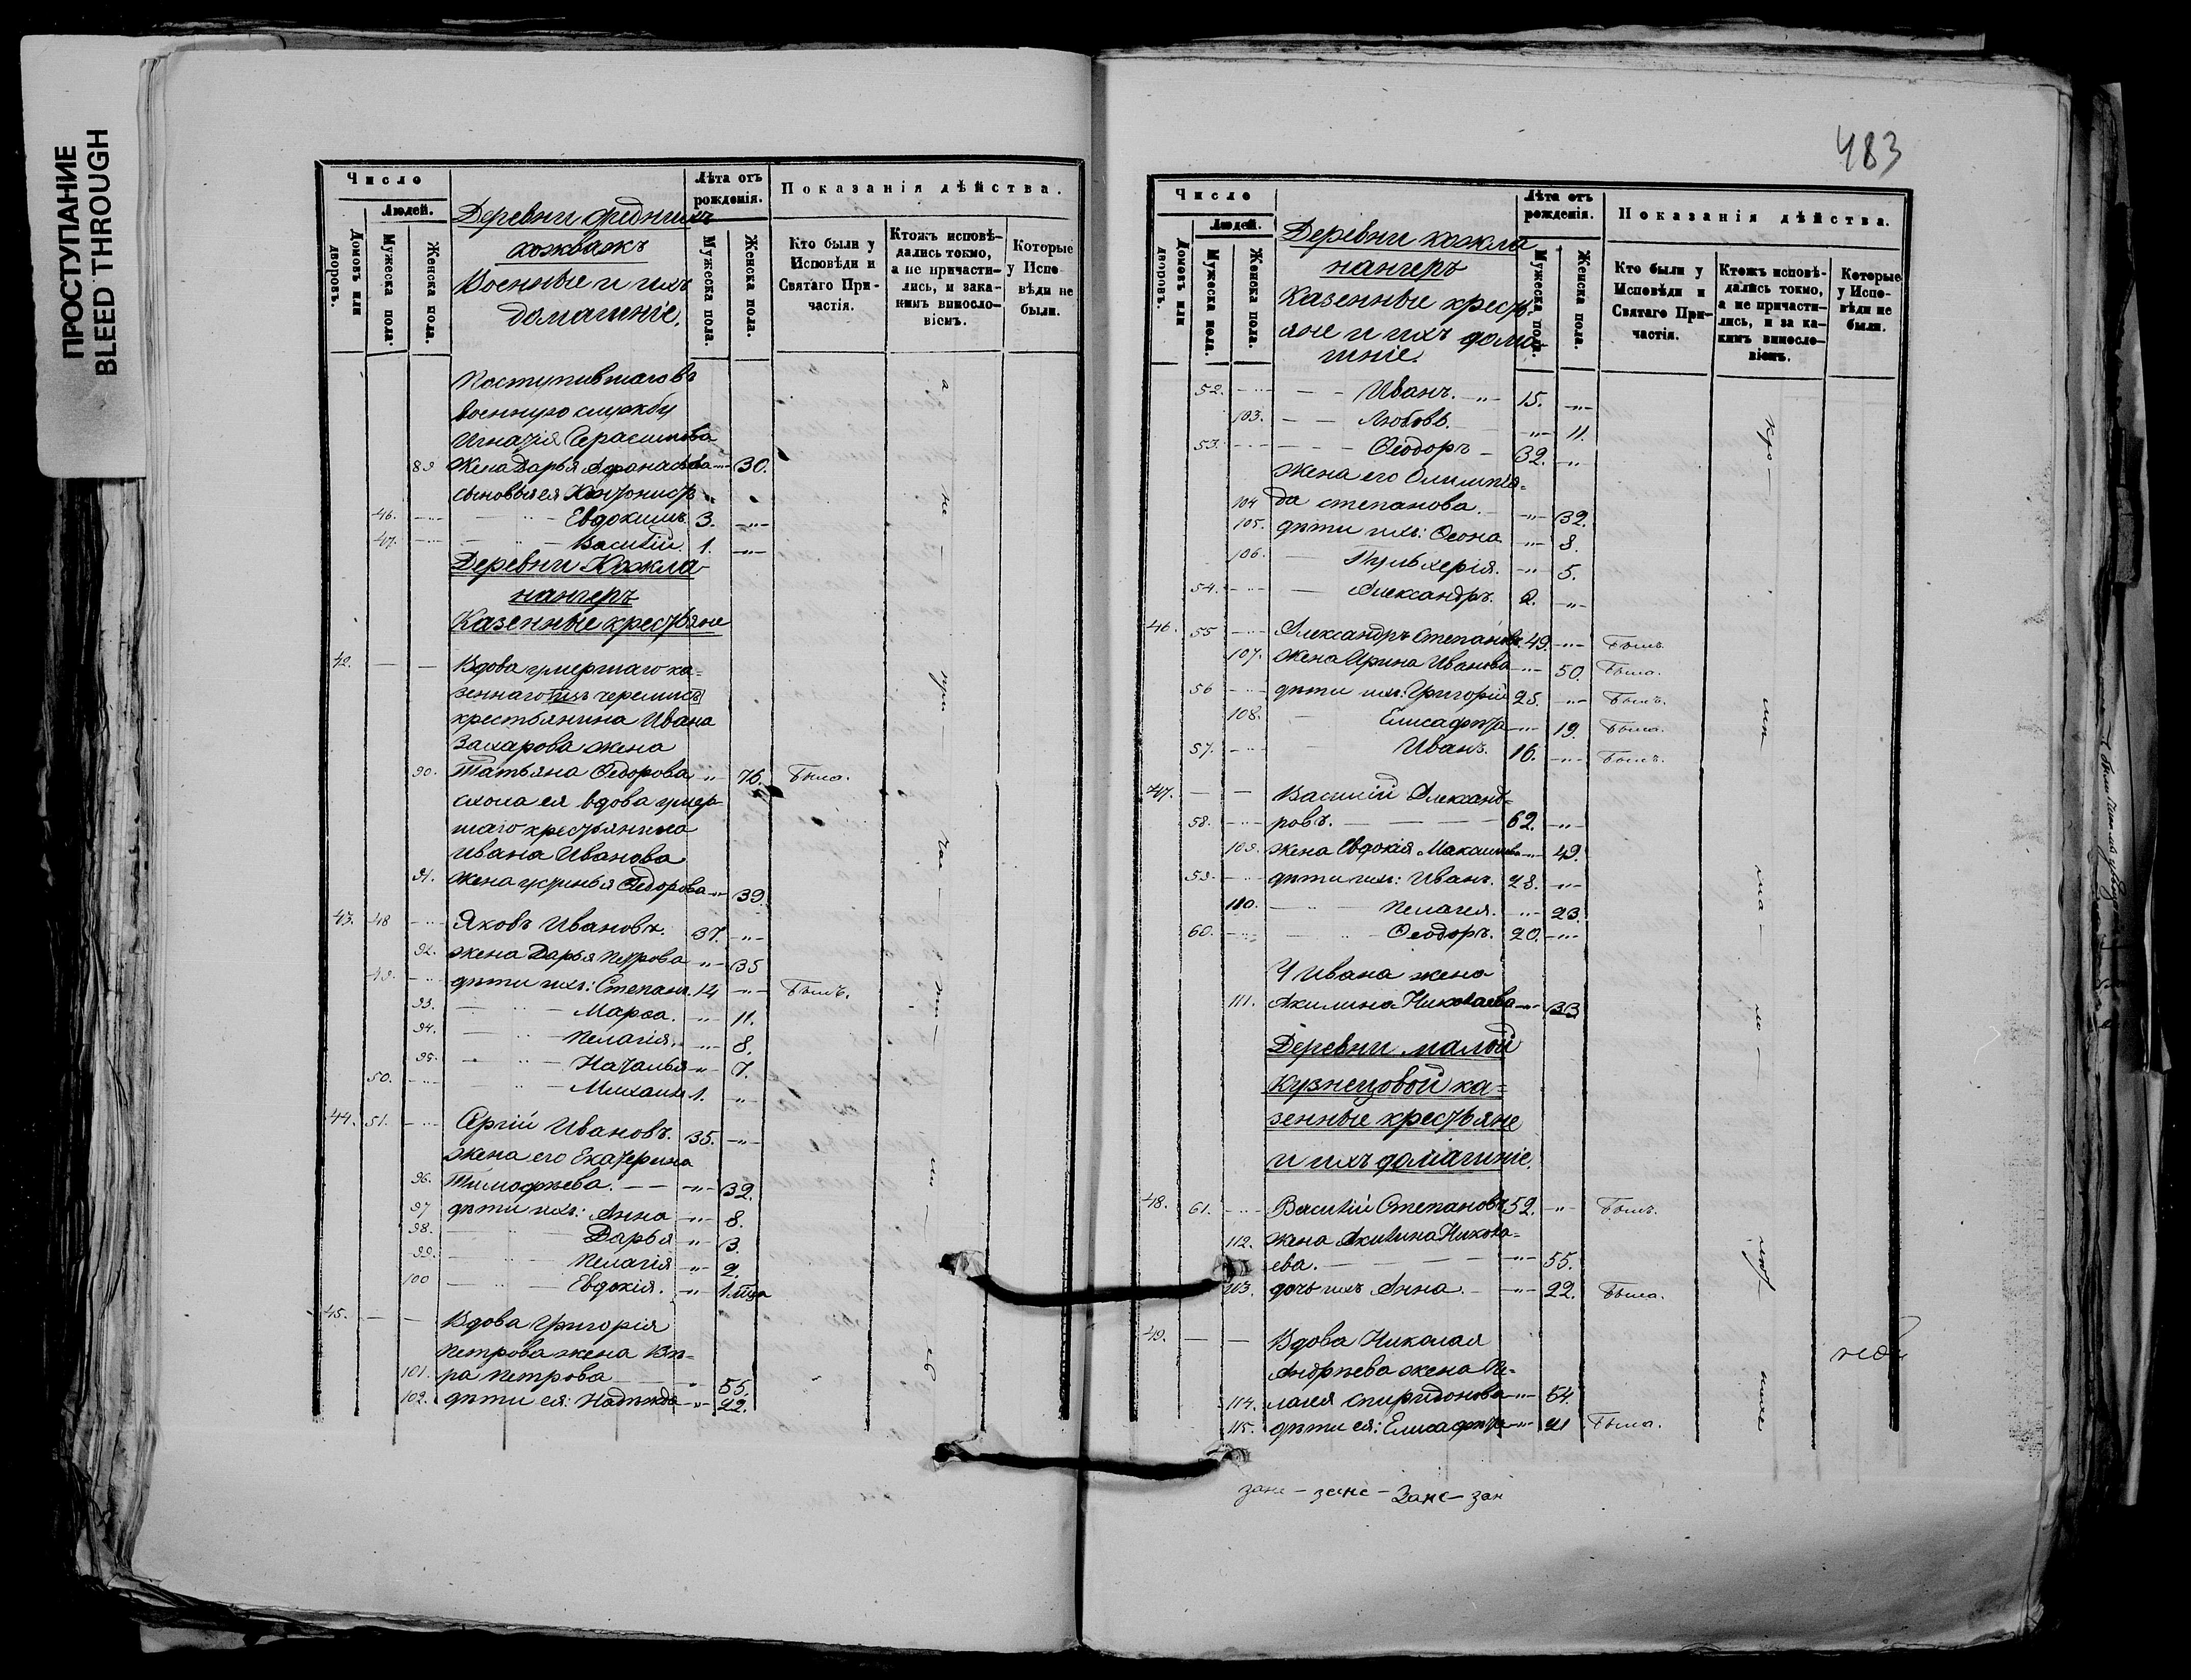 ПРОСТУПАНИЕ
BLEED THROUGH
Число
Людей.
Домовъ или дворовъ.
Мужеска пола.
Женска пола.
Деревни средних
Военные и ихъ
домашніе.
Лѣта отъ рожденія.
Мужеска пола.
Женска пола.
Показанія дѣйства.
Кто были у Исповѣди и Святаго Причастія.
Ктожъ исповѣдались токмо, а не причастились, и за какимъ винословіемъ.
Которые у Исповѣди не были.
Поступившаго въ
военную службу
Игнатія Герасимова
89 жена Дарья Афанасьева -"- 30.
сыновья ея
46. -"- Евдокимъ. 3. -"-
47. -"- Василій. 1. -"-
Деревни Кожла
нангеръ
Казенные крестьяне
42. — — Вдова умершаго ка=
зеннаго изъ черемисъ
крестьянина Ивана
Захарова жена
90. Татьяна Ѳедорова -"- 76. Была.
сноха ея вдова умер-
шаго крестьянина
Ивана Иванова
91. жена Устинья Ѳедорова -"- 39.
43. 48 -"- Яковъ Ивановъ. 37. -"-
92. жена Дарья Петрова -"- 35
49. -"- дѣти ихъ: Степанъ. 14 -"- Былъ.
93. Марѳа. -"- 11.
94. Пелагія. -"- 8.
95. Наталья -"- 7.
50. -"- Михаилъ 1. -"-
44. 51. -"- Сергій Ивановъ. 35. -"-
жена его Екатерина
96. Тимофѣева. -"- 32.
97 дѣти ихъ: Анна -"- 8.
98. Дарья -"- 3.
99. Пелагія -"- 2.
100 Евдокія. -"- 1
45. — — Вдова Григорія
Петрова жена Вѣ=
101. ра Петрова " 55.
102. дѣти ея: Надежда -"- 22.
483
Число
Людей.
Домовъ или дворовъ.
Мужеска пола.
Женска пола.
Деревни кожла
нангеръ
Казенные кресть
яне и ихъ дома
шніе.
Лѣта отъ рожденія.
Мужеска пола.
Женска пола.
Показанія дѣйства.
Кто были у Исповѣди и Святаго Причастія.
Ктожъ исповѣдались токмо, а не причастились, и за какимъ винословіемъ.
Которые у Исповѣди не были.
52. -"- Иванъ. 15. -"-
103. Любовь. -"- 11.
53. -"- Ѳеодоръ 32. -"-
жена его Олимпіа=
104 да Степанова. -"- 32.
105. дѣти ихъ: -"- 8.
106. Пульхерія. -"- 5.
54. -"- Александръ. 2. -"-
46. 55 -"- Александръ Степановъ. 49. -"- Былъ.
107. жена Ирина Иванова -"- 50. Была.
56 -"- дѣти ихъ: Григорій 25. -"- Былъ.
108. Елисафета -"- 19. Была.
57. -"- Иванъ. 16. -"- Былъ.
47. — — Василій Александ=
58. -"- ровъ. 62. -"-
109. жена Евдокія Максимова -"- 49.
59. -"- дѣти ихъ: Иванъ. 28. -"-
110. Пелагея. -"- 23.
60. -"- Ѳеодоръ. 20. -"-
У Ивана жена
111. Акилина Николаева -"- 33
Деревни малой
Кузнецовой ка=
зенные крестьяне
и ихъ домашніе.
48. 61. -"- Василій Степановъ 52. -"- Былъ.
112. жена Акилина Никола=
ева. -"- 55.
113. дочь ихъ Анна. -"- 22. Была.
49. — — Вдова Николая
Андрѣева жена Пе-
114. лагея Спиридонова -"- 54.
115. дѣти ея: Елисафета -"- 21 Была.
зане - зане - Зане - зан